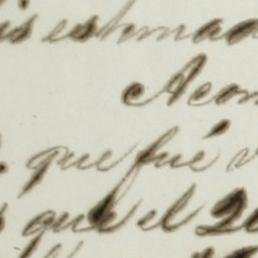 is estimad
Acom
que fué v
que el 20